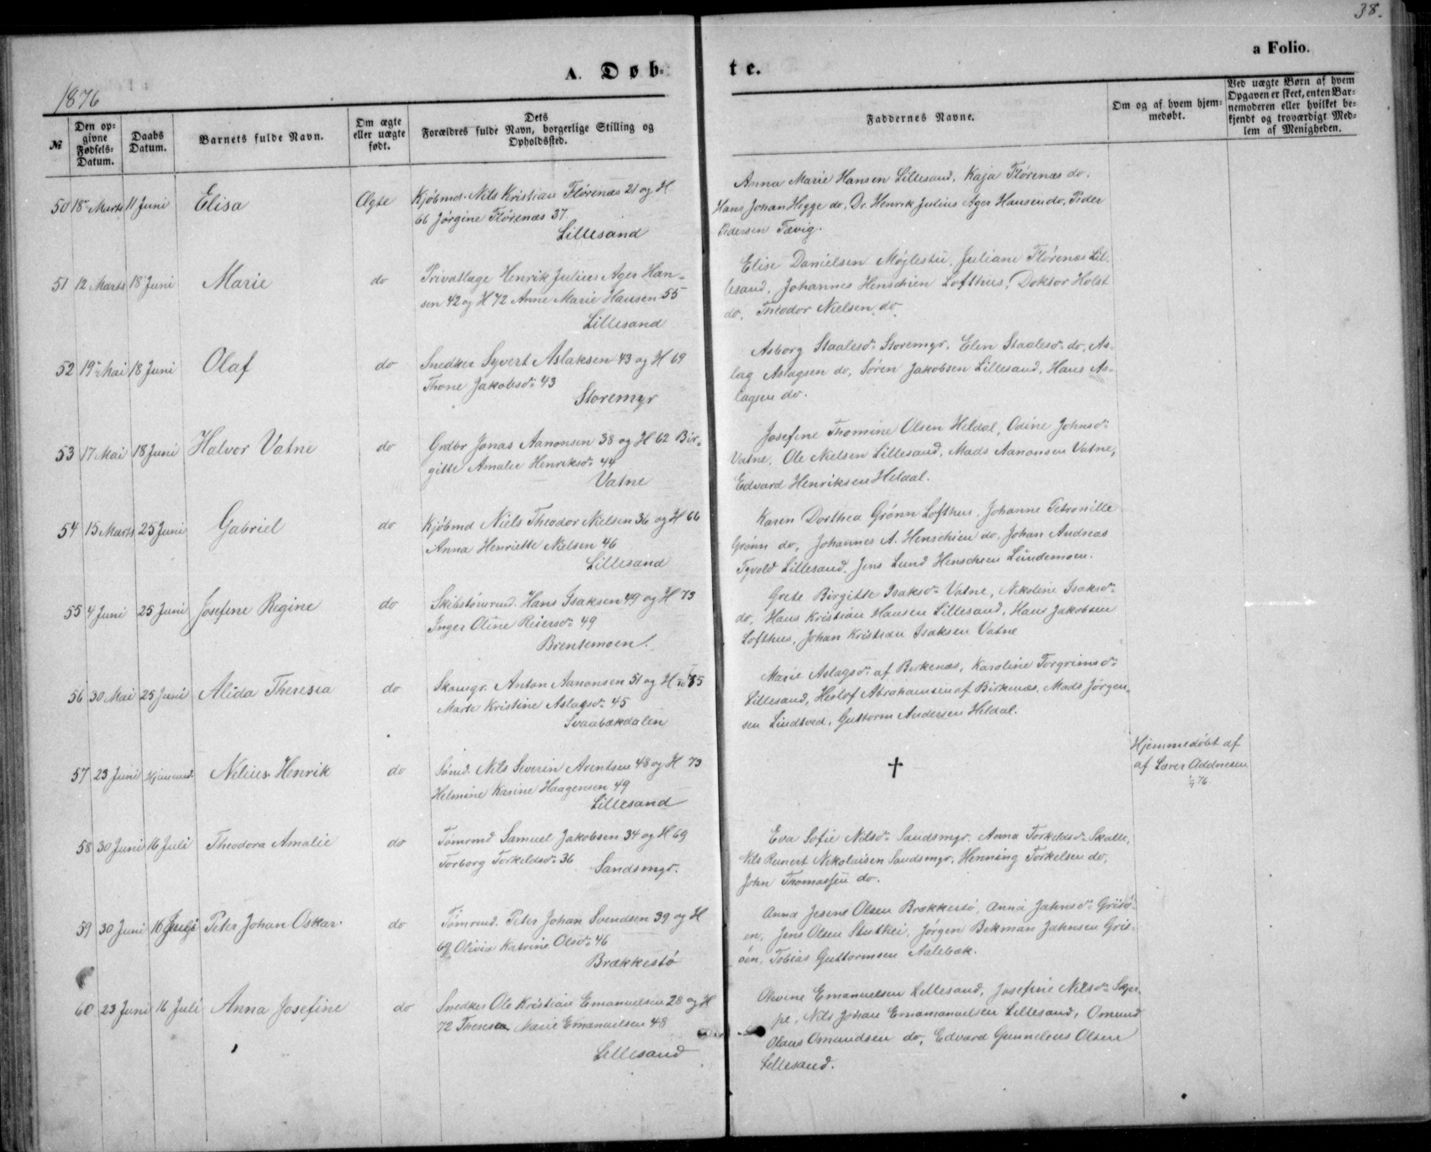 38.
a Folio.
A. Døbte.
1876
№
Den opgivne Fødsels-Datum.
Daabs Datum.
Barnets fulde Navn.
Om ægte eller uægte født.
Dets Forældres fulde Navn, borgerlige Stilling og Opholdssted.
Faddernes Navne.
Om og af hvem hjemmedøbt.
Ved uægte Børn af hvem Opgaven er skeet, enten Barnemoderen eller hvilket bekjendt og troværdigt Medlem af Menigheden.
50 18de Marts 11 Juni Elisa Ægte
Kjøbmd. Nils Kristian Flørenæs 21 og H
66 Jørgine Flørenæs 37.
Lillesand
Anna Marie Hansen Lillesand, Kaja Flørenæs do,
Hans Johan Hegge do, Dr. Henrik Julius Ager Hansen do, Peder
Pedersen Tævig.
51 12 Marts 18 Juni Marie do
Privatlæge Henrik Julius Ager Han-
sen 42 og H 72 Anne Marie Hansen 55
Lillesand
Elise Danielsen Møglestu, Juliane Flørenæs Lil-
lesand, Johannes Henschien Lofthus, Doktor Holst
do, Theodor Nielsen do
52 19de Mai 18 Juni Olaf do
Snedker Syvert Aslaksen 43 og H 69
Thone Jakobsdr 43
Storemyr
Asborg Staalesdr Storemyr, Elen Staalesdr do, As-
lag Aslagsen do, Søren Jakobsen Lillesand, Hans As-
lagsen do.
53 17 Mai 18 Juni Halvor Vatne do
Grdbr Jonas Aanonsen 38 og H 62 Bir-
gitte Amalie Henriksdr 44
Vatne
Josefine Thomine Olsen Heldal, Odine Johnsdr
Vatne, Ole Nielsen Lillesand, Mads Aanonsen Vatne,
Edvard Henriksen Heldal.
54 15 Marts 25 Juni Gabriel do
Kjøbmd Niels Theodor Nielsen 36 og H 66
Anna Henriette Nielsen 46
Lillesand
Karen Dorthea Grønn Lofthus, Johanne Petronille
Grønn do, Johannes A. Henschien do, Johan Andreas
Tyvold Lillesand, Jens Lund Henschien Lundemoen.
55 4 Juni 25 Juni Josefine Regine do
Skibstømrmd. Hans Isaksen 49 og H 73
Inger Oline Reiersdr 49
Brentemoen.
Grete Birgitte Isaksdr Vatne, Nikoline Isaksdr
do, Hans Kristian Hansen Lillesand, Hans Jakobsen
Lofthus, Johan Kristian Isaksen Vatne
56 30 Mai 25 Juni Alida Theresia do
Skomgr. Anton Aanonsen 51 og H 75
Marte Kristine Aslagsdr 45
Svaabækdalen
Marie Aslagsdr af Birkenæs, Karoline Torgrimsdr
Lillesand, Herlof Abrahamsen af Birkenæs, Mads Jørgen-
sen Lindtved, Guttorm Andersen Heldal.
57 23 Juni Hjemmed. Nelius Henrik do
Sømd. Nils Severin Arentsen 48 og H 73
Helmine Karine Haagensen 49
Lillesand
†
Hjemmedøbt af
af Lærer Addnesen
76.
58 30 Juni 16 Juli Theodora Amalie do
Tømrmd Samuel Jakobsen 34 og H 69
Torborg Torkeldsdr 36 Sandsmyr.
Eva Sofie Nilsdr Sandsmyr, Anna Torkeldsdr Skalle,
Nils Reinert Nikolaisen Sandsmyr, Henning Torkelsen do,
John Thomassen do.
59 30 Juni 16 Juli Peter Johan Oskar do
Tømrmd. Peter Johan Svendsen 39 og H
69 Olivia Katrine Olsdr 46
Brækkestø
Anna Jesine Olsen Brækkestø, Anna Jahnsdr Grisø-
en, Jens Olsen, Jørgen Bekman Jahnsen Gris-
øen, Tobias Guttormsen Aalebæk.
60 23 Juni 16 Juli Anna Josefine do
Snedker Ole Kristian Emanuelsen 28 og H
72 Theresea Marie Emanuelsen 48
Lillesand
Emanuelsen Lillesand, Josefine Nilsdr Skjer-
pe, Nils Johan Ernamanuelsen Lillesand, Osmund
Olaus Omundsen do, Edvard Gunnelius Olsen
Lillesand.